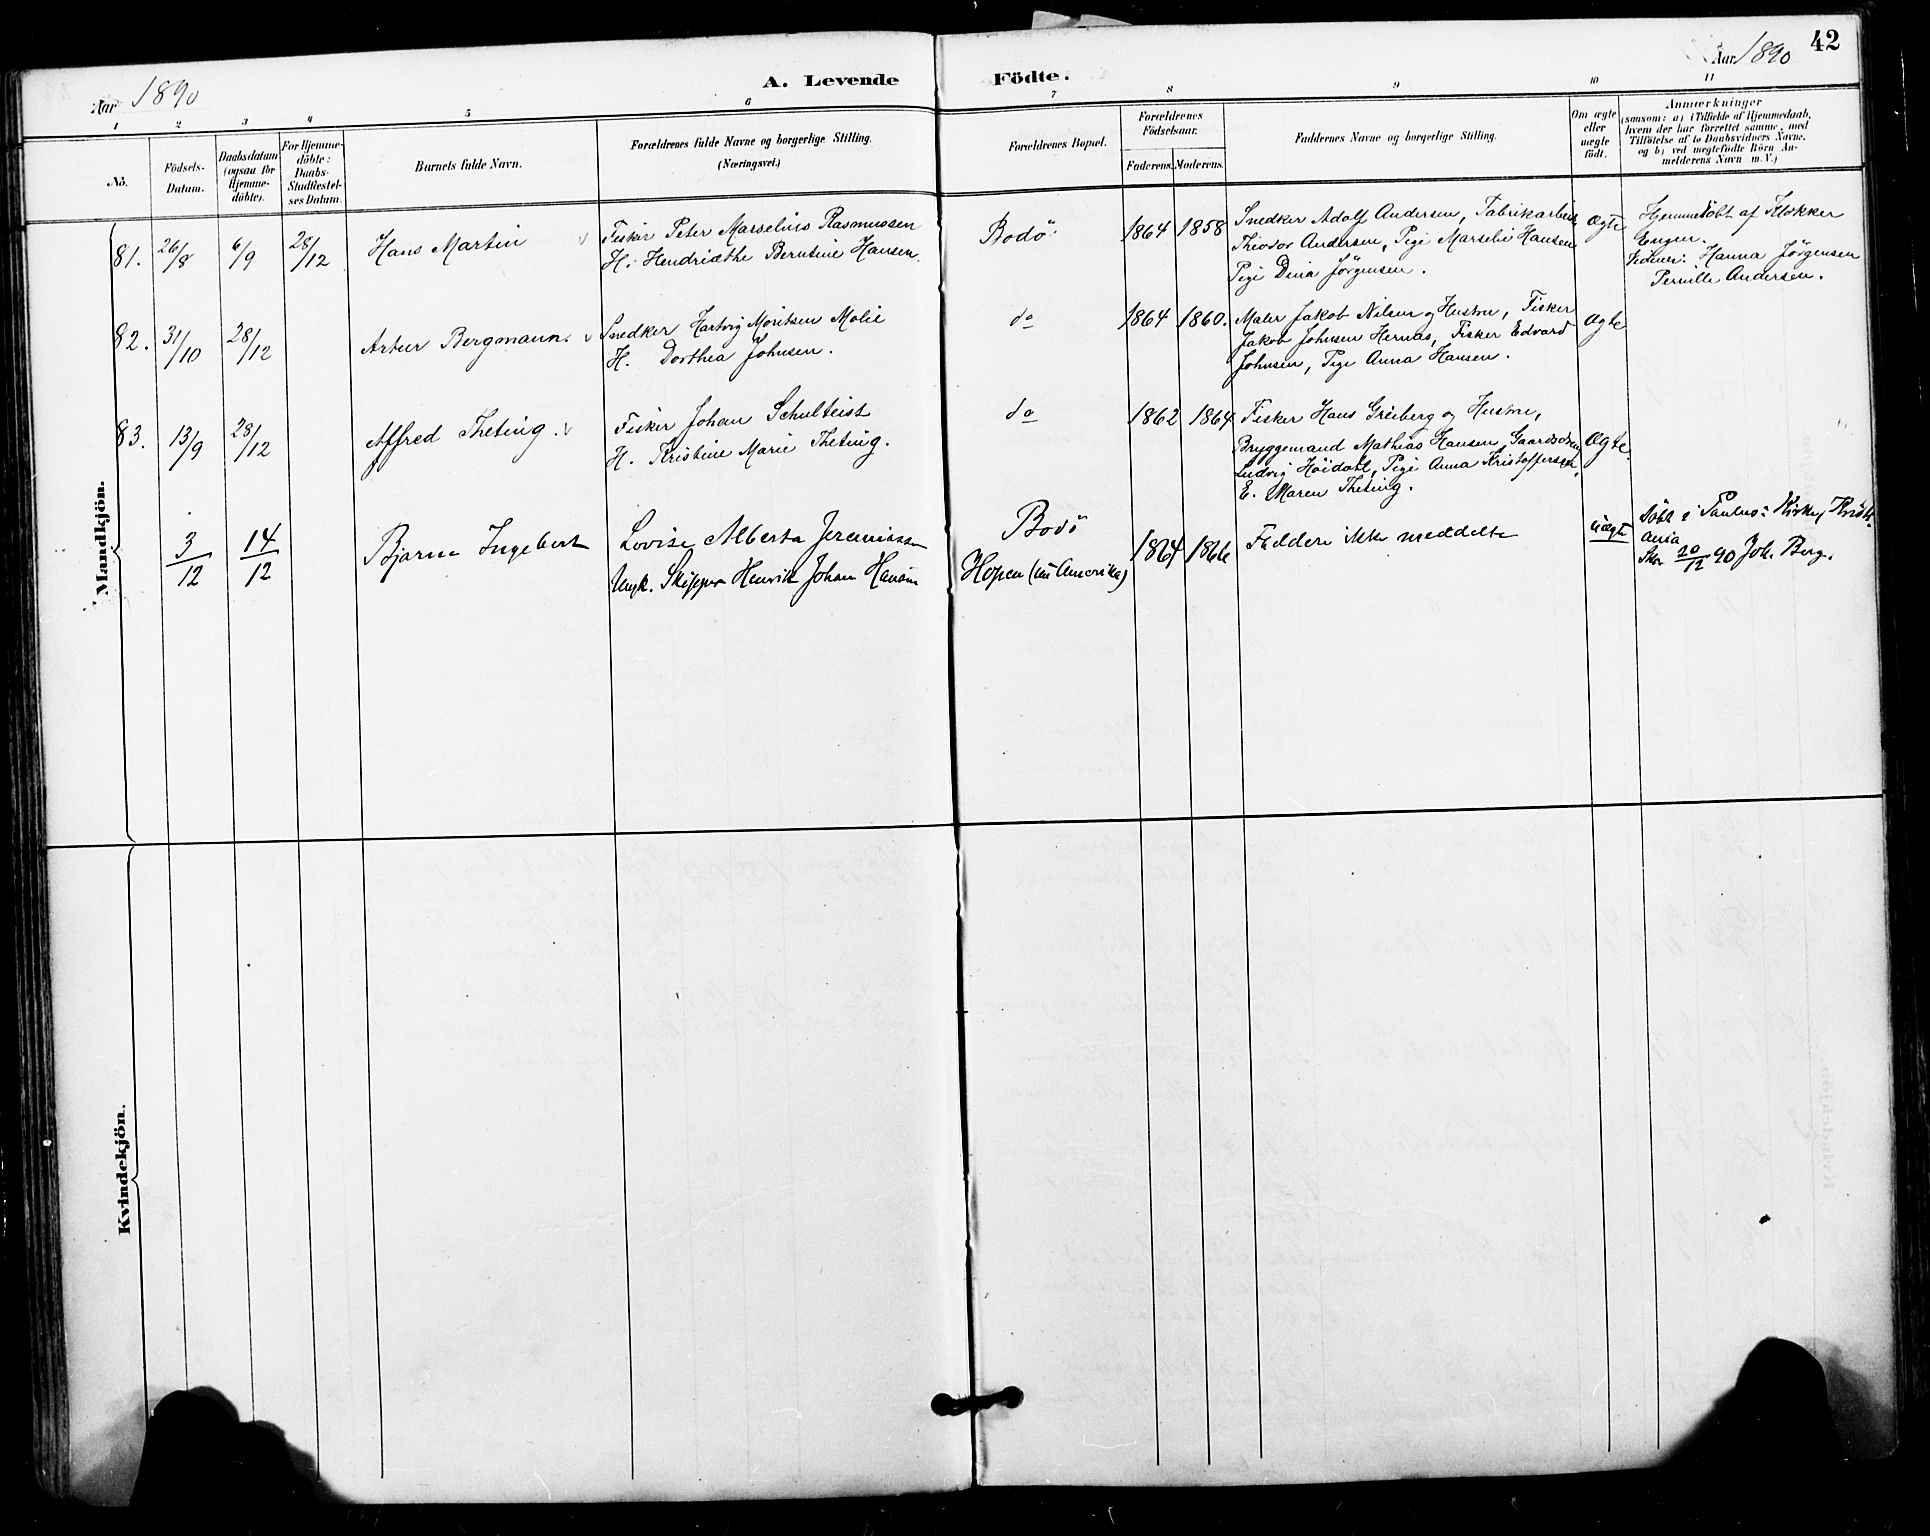 42
Aar 1890
A. Levende Födte.
Aar 1890
1 2 3 4 5 6 7 8 9 10 11
No.
Födsels-
Datum.
Daabsdatum
(ogsaa för
Hjemme-
döbte).
For Hjemme-
döbte:
Daabs-
Stadfæstel-
ses Datum.
Barnets fulde Navn.
Forældrenes fulde Navne og borgerlige Stilling.
(Næringsvei.)
Forældrenes Bopæl.
Forældrenes
Födselsaar.
Faderens.
Moderens.
Faddernes Navne og borgerlige Stilling.
Om ægte
eller
uægte
födt.
Anmærkninger
(saasom: a) i Tilfælde af Hjemmedaab,
hvem der har forrettet samme, med
Tilföielse af to Daabsvidners Navne,
og b) ved uægtefödte Börn An-
melderens Navn m. V.)
Mandkjön.
81. 26/8 6/9 28/12
Hans Martin
Fisker Peter Marselius Rasmussen
H. Hendriæthe Berntine Hansen.
Bodö
1864 1858
Snedker Adolf Andersen, Fabrikarbeid.
Theodor Andersen, Pige Marselie Hansen
Pige Dina Jörgensen.
Ægte
Hjemmedöbt af Klokker
Engen.
Vidner: Hanna Jörgensen
Pernille Andersen.
82. 31/10 28/12
Artur Bergmann.
Snedker Hartvig Moritsen Molie
H. Dorthea Johnsen.
do
1864 1860.
Maler Jakob Nilsen og Hustru, Fisker
Jakob Johnsen Hernæs, Fisker Edvard
Johnsen, Pige Anna Hansen.
Ægte
83. 13/9 28/12
Alfred Theting.
Fisker Johan Schulteist
H. Kristine Marie Theting.
do
1862 1864
Fisker Hans Greiberg og Hustru,
Bryggemand Mathias Hansen, Gaardsdreng
Ludvig Höidahl, Pige Anna Kristoffersen,
E. Maren Theting.
Ægte.
3/12 14/12
Bjarne Ingebert
Lovise Alberta Jeremiassen
Ungk. Skipper Henrik Johan Hansen
Bodö
Hopen (nu Amerika)
1864 1866
Faddere ikke meddelte
uægte
Döbt i Paulus Kirke, Kristi-
ania
20/12 90 Joh. Berg.
Kvindekjön.